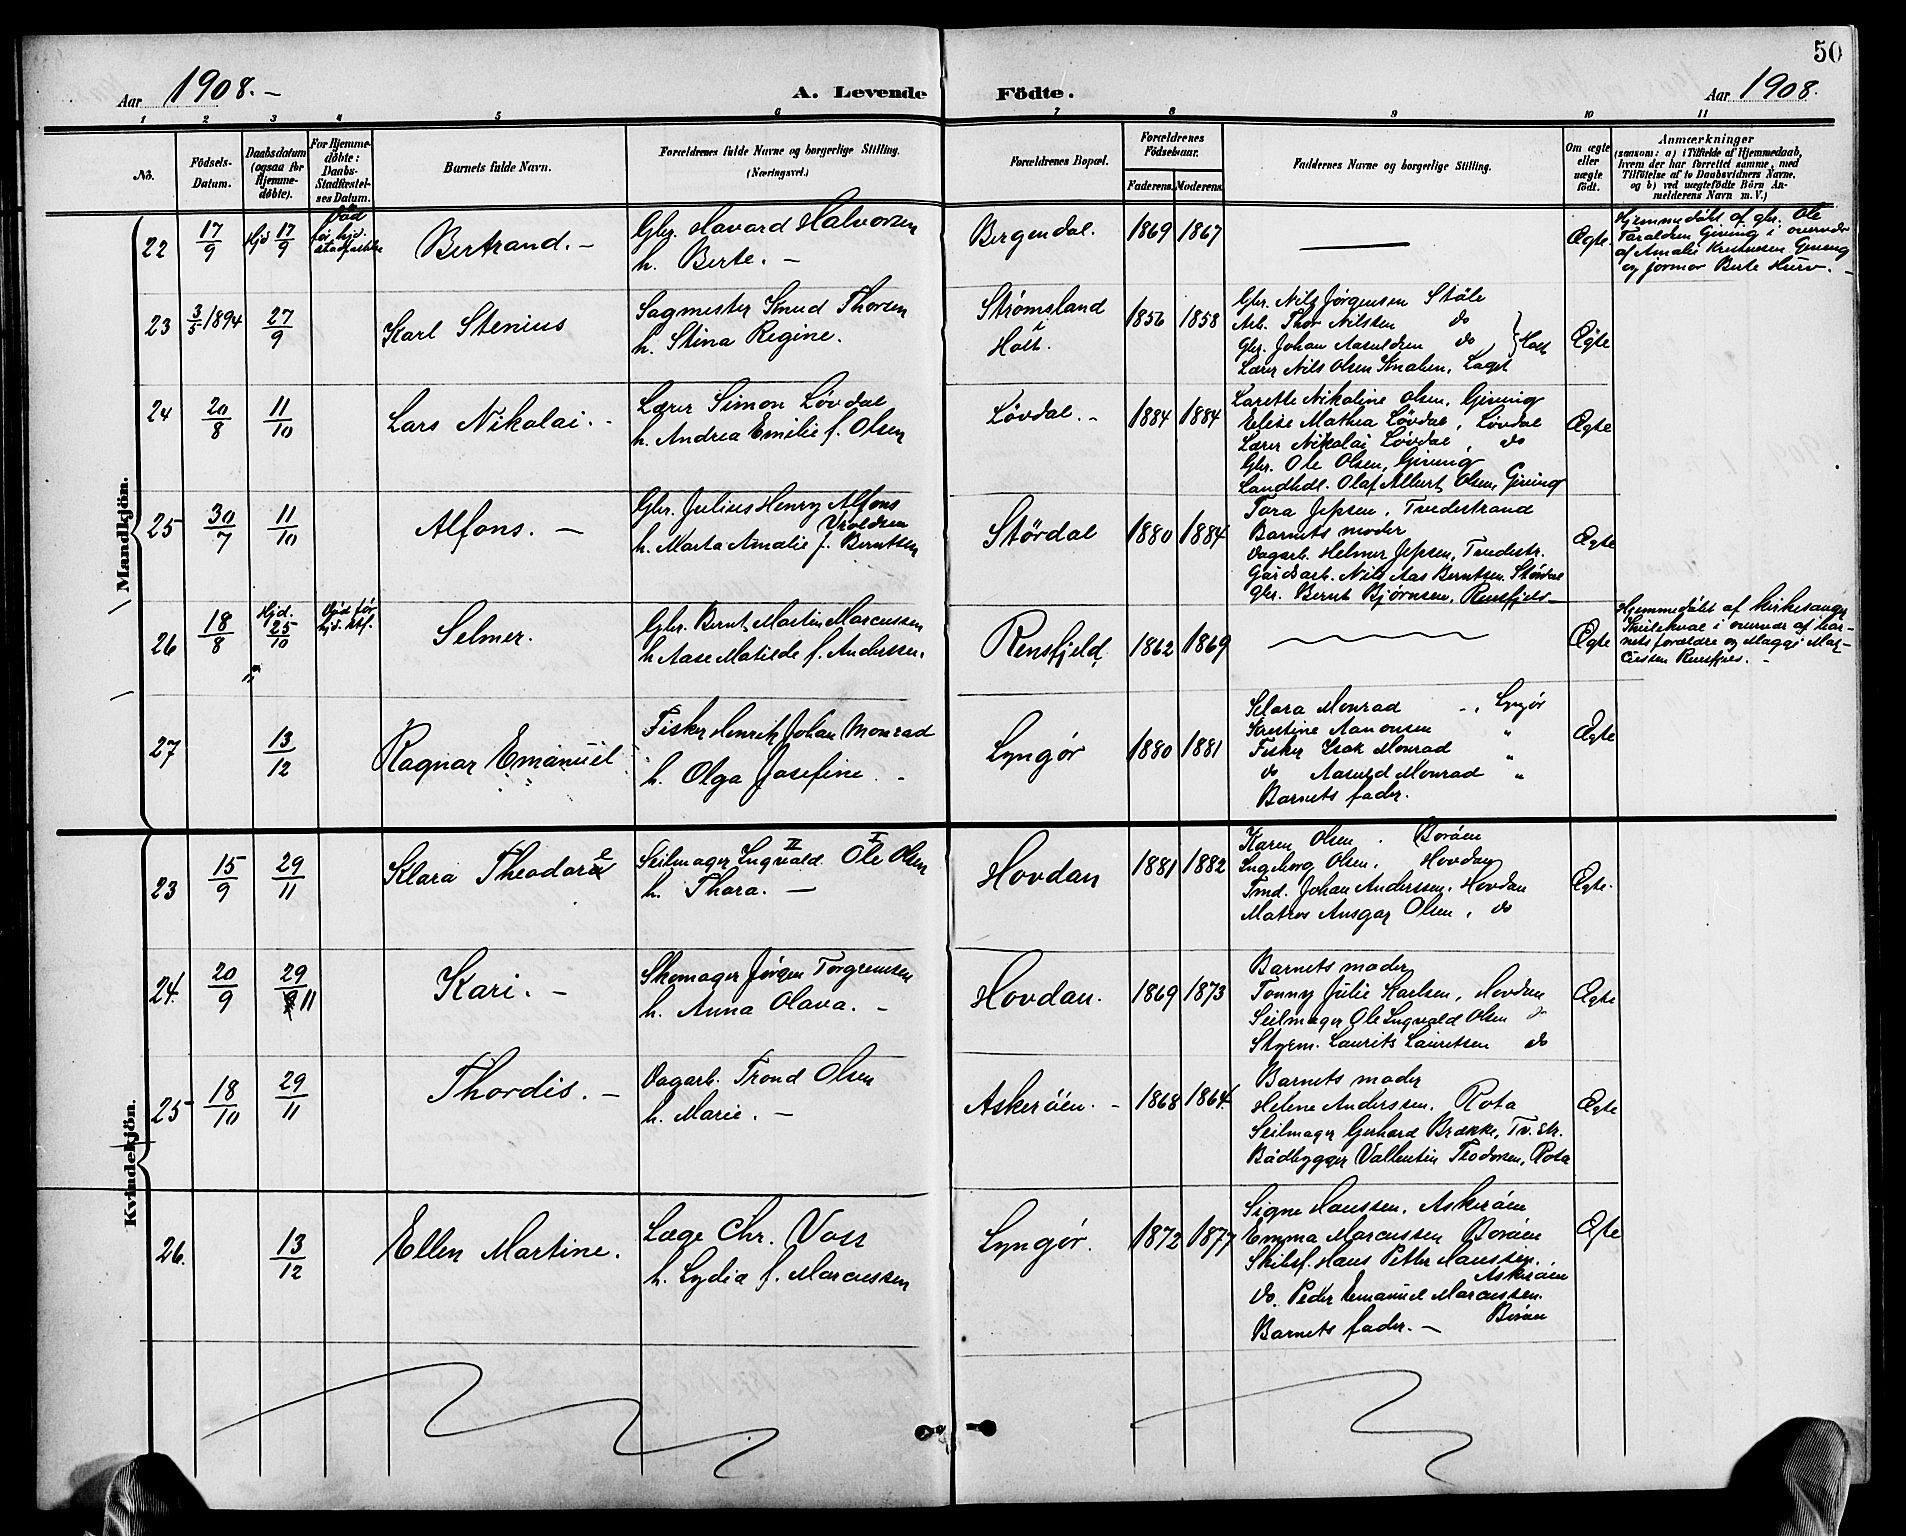 50
Aar 1908. –
A. Levende Födte.
Aar 1908.
1 2 3 4 5 6 7 8 9 10 11
No.
Födsels-Datum.
Daabsdatum (ogsaa for Hjemme-döbte).
For Hjemme-döbte: Daabs-Stadfæstel-ses Datum.
Barnets fulde Navn.
Forældrenes fulde Navne og borgerlige Stilling. (Næringsvei.)
Forældrenes Bopæl.
Forældrenes Födselsaar.
Faderens. Moderens.
Faddernes Navne og borgerlige Stilling.
Om ægte eller uægte födt.
Anmærkninger
(saasom: a) i Tilfælde af Hjemmedaab, hvem der har forrettet samme, med Tilföielse af to Daabsvidners Navne, og b) ved uægtefödte Börn An-melderens Navn m. V.)
Mandkjön.
22 17/9 Hjd 17/9 Död før hjd. stadfæstelse Bertrand. –
Gbr. Havard Halvorsen
h. Berte. –
Bergendal. 1869 1867 — Ægte.
Hjemmedøbt af gbr. Ole
Taraldsen Giving i overvær
af Amalie Kristensen Giving
og jormor Berte Hurv. –
23 3/5 1894 27/9 Karl Stenius
Sagmester Knud Thorsen
h. Stina Regine.
Strømsland
i
Holt.
1856 1858
Gbr. Nils Jørgensen Støle
Arb. Thor Nilsen do
Gbr. Johan Aasuldsen do } Holt
Lærer Nils Olsen Knalen, Laget
Ægte
24 20/8 11/10 Lars Nikolai. –
Lærer Simon Løvdal
h. Andrea Emilie f. Olsen
Løvdal. – 1884 1884
Larette Nikoline Olsen, Giving
Elise Mathea Løvdal, Løvdal
Lærer Nikolai Løvdal, do
Gbr. Ole Olsen, Giving
Landhdl. Olaf Albert Olsen, Giving
Ægte
25 30/7 11/10 Alfons. –
Gbr. Julius Henry Alfons
Vroldsen
h. Marta Amalie f. Berntsen
Størdal 1880 1884
Tara Jepsen, Tvedestrand
Barnets moder
Dagarb. Helmer Jepsen, Tvedestr.
Gårdsarb. Nils Aas Berntsen. Stördal
Gbr. Bernt Bjørnsen, Rensfjeld
Ægte
26 18/8 Hjd. 25/10 Død før hjd. stf. Selmer.
Gbr. Bernt Martin Marcussen
h. Aase Matilde f. Anderssen.
Rensfjeld. 1862 1869 Ægte
Hjemmedøbt af kirkesanger
i overvær af bar-
nets forældre og Maggi Mar-
cussen Rensfjeld. –
27 13/12 Ragnar Emanuel
Fisker Henrik Johan Monrad
h. Olga Josefine.
Lyngør 1880 1881
Klara Monrad –, Lyngør
Kristine Aanonsen "
Fisker Isak Monrad "
do Aasuld Monrad "
Barnets fader.
Ægte
Kvindekjön.
23 15/9 29/11 Klara Theodore
Seilmager Ingvald II Ole I Olsen
h. Thara. –
Hovdan 1881 1882
Karen Olsen. Borøen
Ingeborg Olsen, Hovdan
Tmd. Johan Anderssen. Hovdan
Matros Ansgar Olsen, do
Ægte.
24. 20/9 29/11 Kari. –
Skomager Jørgen Torgrimsen
h. Anna Olava. –
Hovdan. 1869 1873
Barnets moder
Tonny Julie Karlsen, Hovdan
Seilmager Ole Ingvald Olsen do
Styrm. Laurits Lauritsen do
Ægte
25 18/10 29/11 Thordis. –
Dagarb. Trond Olsen
h. Marie. –
Askerøen. – 1868 1864.
Barnets moder
Helene Anderssen. Rota
Seilmager Gerhard Brække, Tv.str.
Bådbygger Vallentin Teodorsen, Rota
Ægte
26. 13/12 Ellen Martine.
Læge Chr. Voss
h. Lydia f. Marcussen
Lyngør. 1872 1877
Signe Hanssen, Askerøen
Emma Marcussen Borøen
Skibsf. Hans Petter Hanssen,
Askerøen
do. Peder Emanuel Marcussen.
Borøen
Barnets fader. –
Ægte